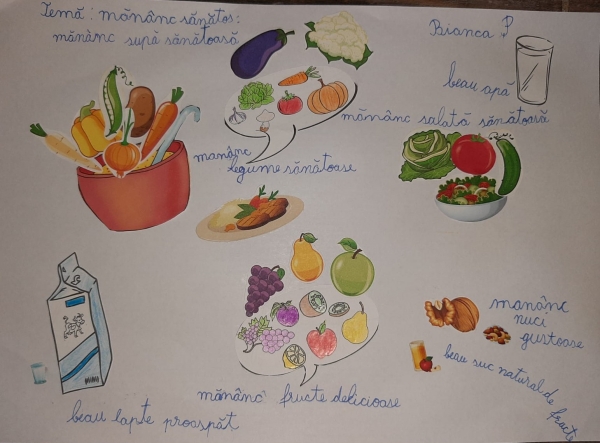 Temă: mănânc sănătos:
mănânc supă sănătoasă
Bianca P
beau apă
mănânc salată sănătoasă
manânc
legume sănătoase
manânc
nuci
gustoase
beau suc natural de fructe
mănânc fructe delicioase
beau lapte proaspăt
MIMI